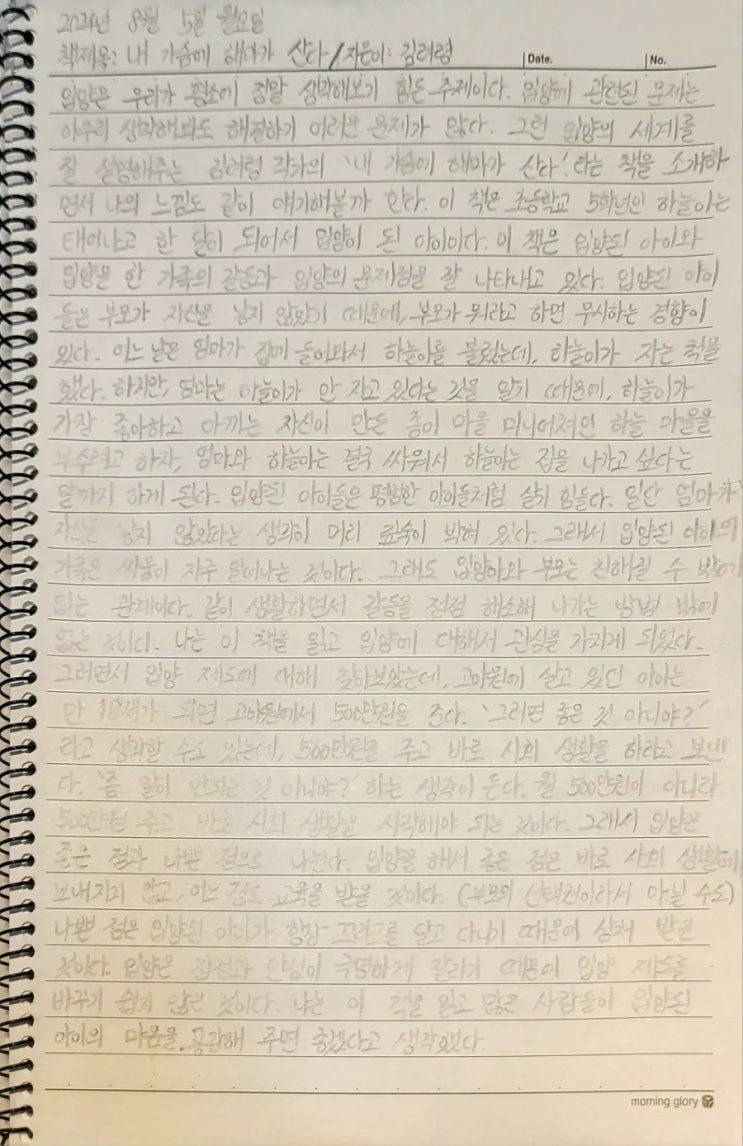 2024년 8월 5일 월요일
책제목: 내 가슴에 해마가 산다/지은이: 김려령
Date. No.
입양은 우리가 평소에 정말 생각해보기 힘든 주제이다. 입양에 관련된 문제는
아무리 생각해봐도 해결하기 어려운 문제가 많다. 그런 입양의 세계를
잘 설명해주는 김려령 작가의 '내 가슴에 해마가 산다'라는 책을 소개하
면서 나의 느낌도 같이 얘기해볼까 한다. 이 책은 초등학교 5학년인 하늘이는
태어나고 한 달이 되어서 입양이 된 아이이다. 이 책은 입양된 아이와
입양을 한 가족의 갈등과 입양의 문제점을 잘 나타내고 있다. 입양된 아이
들은 부모가 자신을 낳지 않았기 때문에, 부모가 뭐라고 하면 무시하는 경향이
있다. 어느 날은 엄마가 집에 들어와서 하늘이를 불렀는데, 하늘이가 자는 척을
했다. 하지만, 엄마는 하늘이가 안 자고 있다는 것을 알기 때문에, 하늘이가
가장 좋아하고 아끼는 자신이 만든 종이 마을 미니어쳐인 하늘 마을을
부수려고 하자, 엄마와 하늘이는 결국 싸워서 하늘이는 집을 나가고 싶다는
말까지 하게 된다. 입양된 아이들은 평범한 아이들처럼 살기 힘들다. 일단 엄마가
자신을 낳지 않았다는 생각이 머리 깊숙이 박혀 있다. 그래서 입양된 아이의
가족은 싸움이 자주 일어나는 것이다. 그래도 입양아와 부모는 친해질 수 밖에
없는 관계이다. 같이 생활하면서 갈등을 점점 해소해 나가는 방법 밖에
없는 것이다. 나는 이 책을 읽고 입양에 대해서 관심을 가지게 되었다.
그러면서 입양 제도에 대해 찾아보았는데, 고아원에 살고 있던 아이는
만 18세가 되면 고아원에서 500만원을 준다. '그러면 좋은 것 아니야?'
라고 생각할 수도 있는데, 500만원을 주고 바로 사회 생활을 하라고 보낸
다. '좀 말이 안되는 것 아니야?' 하는 생각이 든다. 월 500만원이 아니라
500만원 주고 바로 사회 생활을 시작해야 되는 것이다. 그래서 입양은
좋은 점과 나쁜 점으로 나뉜다. 입양을 해서 좋은 점은 바로 사회 생활에
보내지지 않고, 어느 정도 교육을 받을 것이다. (부모의 선택권이라서 아닐 수도)
나쁜 점은 입양된 아이가 항상 꼬리표를 달고 다니기 때문에 상처 받을
것이다. 입양은 장점과 단점이 극명하게 갈리기 때문에 입양 제도를
바꾸기 쉽지 않은 것이다. 나는 이 책을 읽고 많은 사람들이 입양된
아이의 마음을 공감해 주면 좋겠다고 생각했다.
morning glory